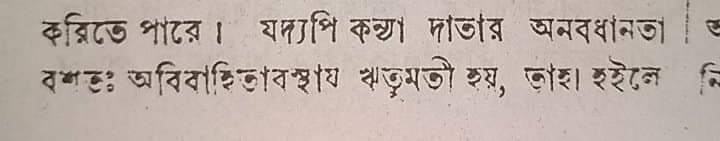 করিতে পারে। যদ্যপি কন্যা দাতার অনবধানতা
বশতঃ অবিবাহিতাবস্থায় ঋতুমতী হয়, তাহা হইলে নি